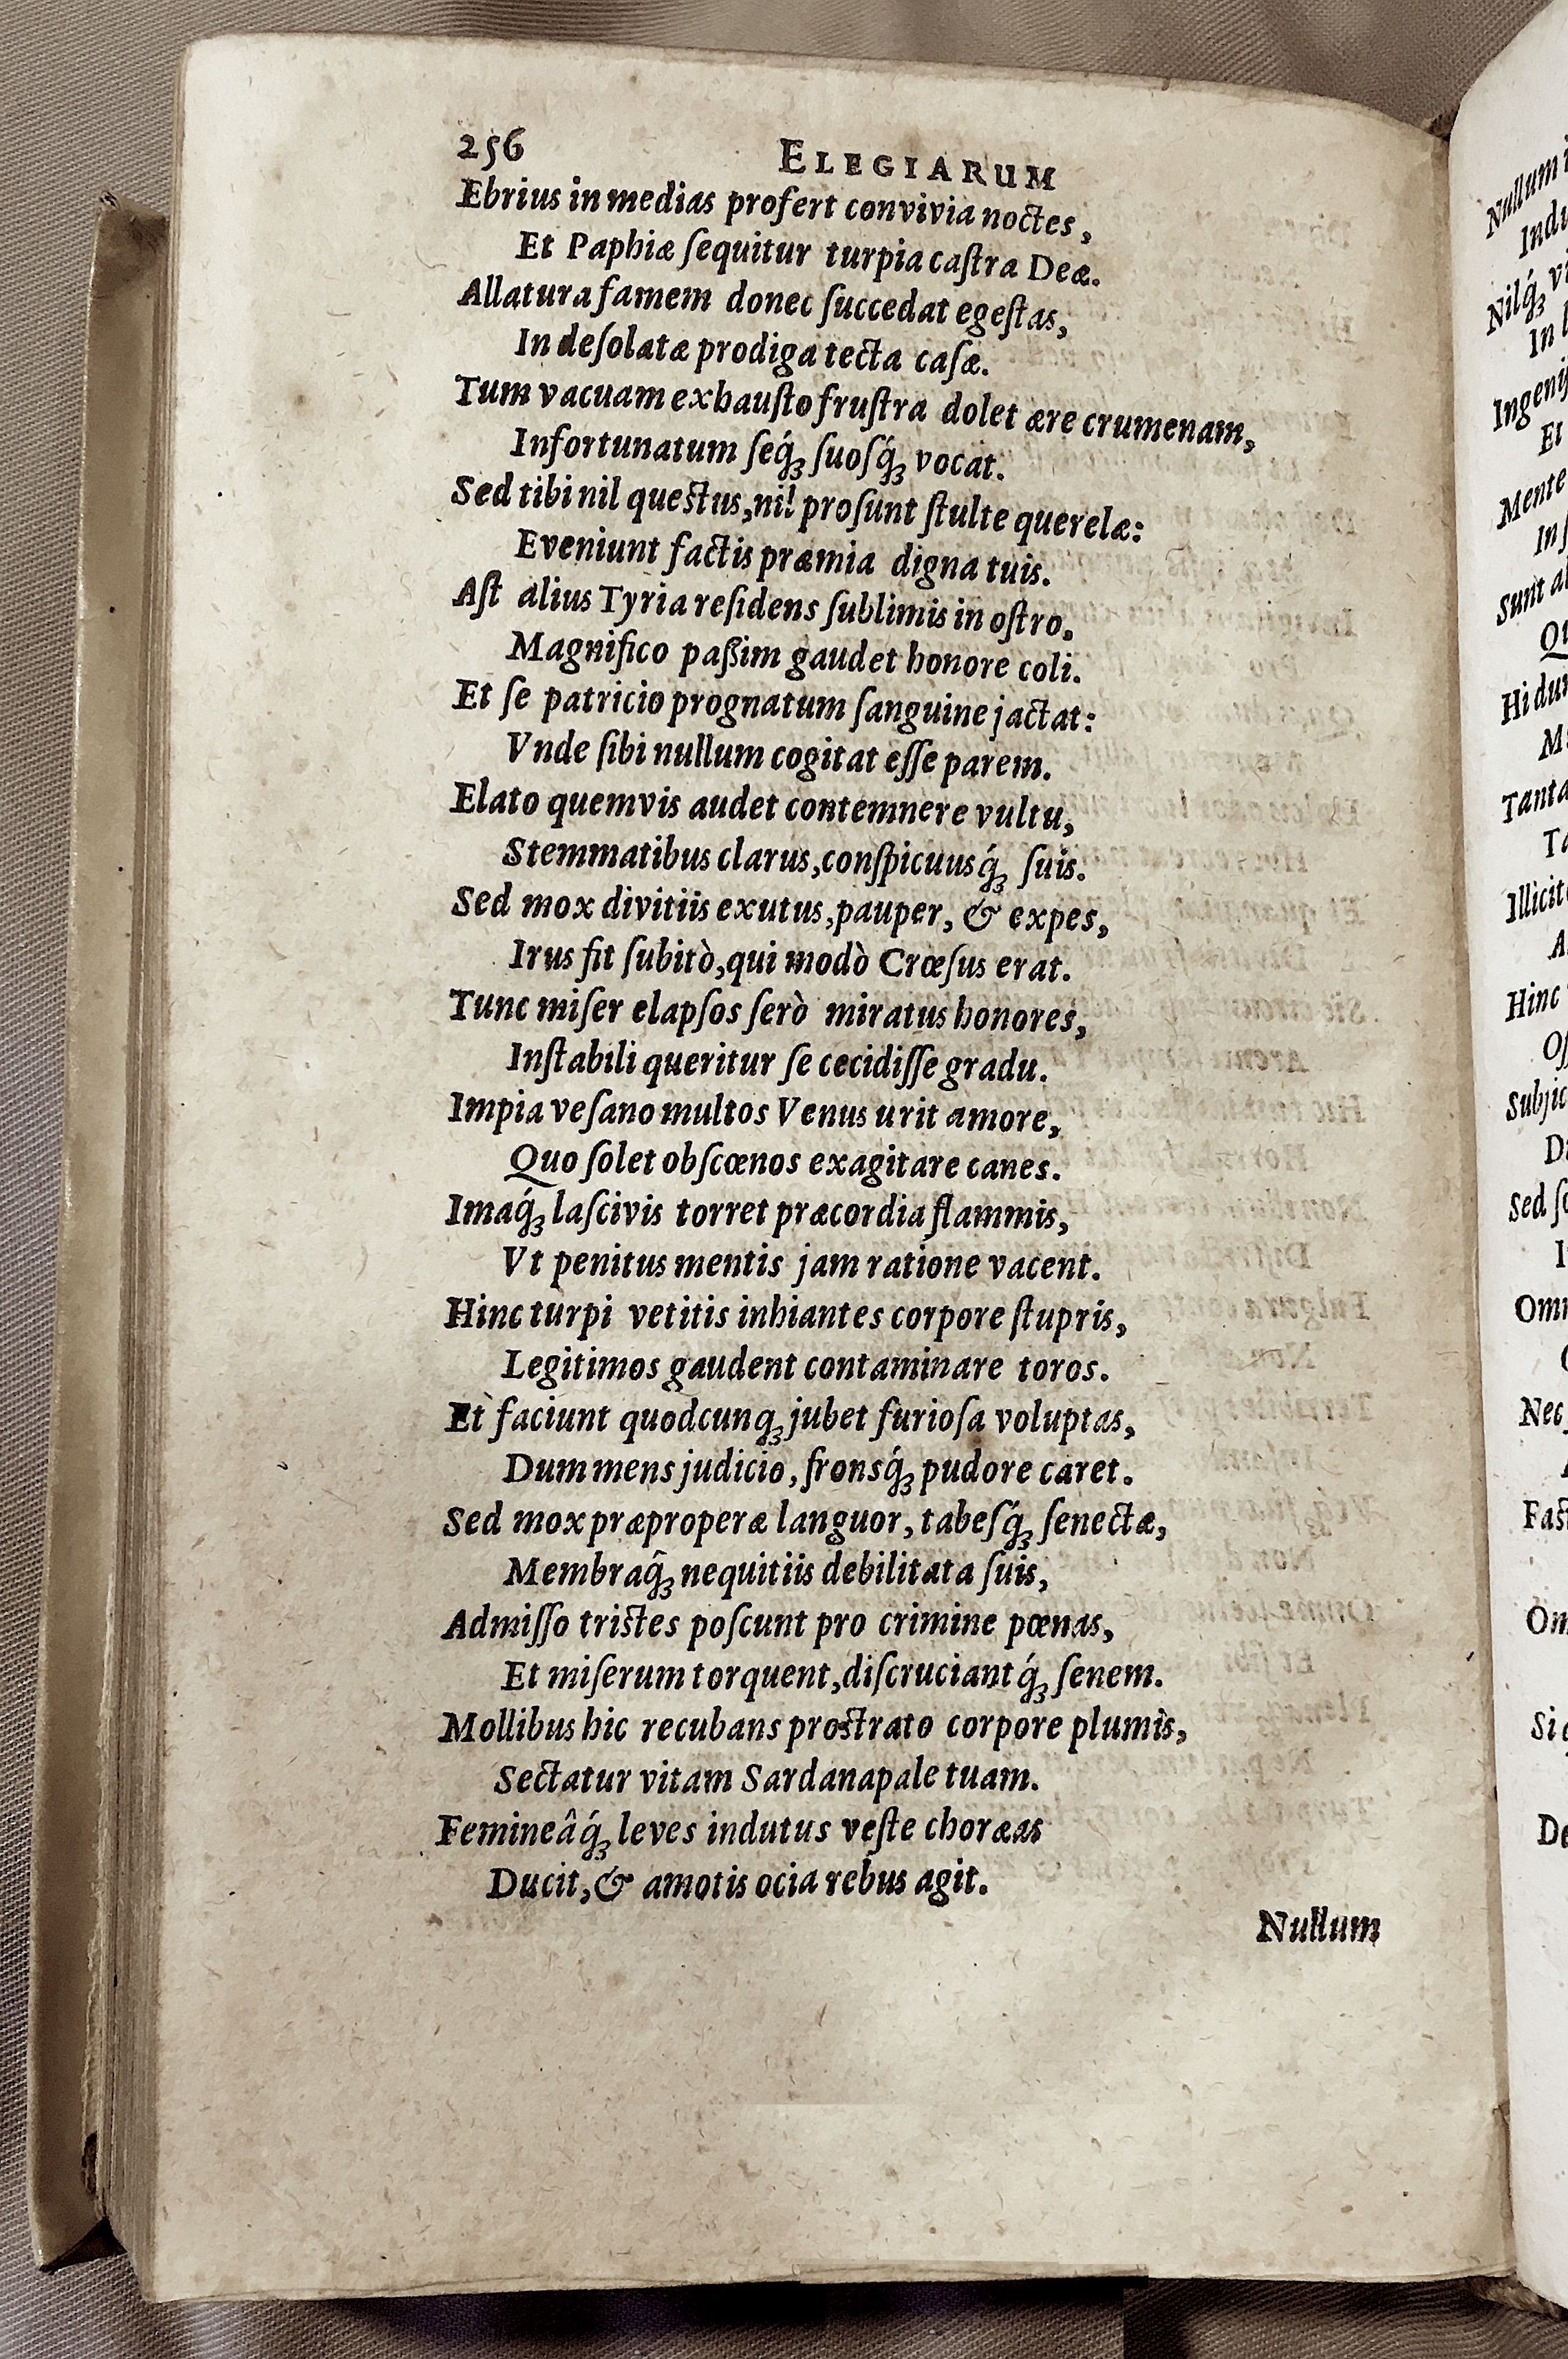 256 ELEGIARUM
Ebrius in medias profert convivia noctes,
Et Paphiæ ſequitur turpia caſtra Deæ.
Allatura famem donec ſuccedat egeſtas,
In deſolatæ prodiga tecta caſæ.
Tum vacuam exhauſto fruſtra dolet ære crumenam,
Infortunatum ſeq́ꝫ ſuoſq́ꝫ vocat.
Sed tibi nil queſtus, nil proſunt ſtulte querelæ:
Eveniunt factis præmia digna tuis.
Aſt alius Tyria reſidens ſublimis in oſtro,
Magnifico paßim gaudet honore coli.
Et ſe patricio prognatum ſanguine jactat:
Vnde ſibi nullum cogitat eſſe parem.
Elato quemvis audet contemnere vultu,
Stemmatibus clarus, conſpicuusq́ꝫ ſuis.
Sed mox divitiis exutus, pauper, & expes,
Irus fit ſubitò, qui modò Crœſus erat.
Tunc miſer elapſos ſerò miratus honores,
Inſtabili queritur ſe cecidiſſe gradu.
Impia veſano multos Venus urit amore,
Quo ſolet obſcœnos exagitare canes.
Imaq́ꝫ laſcivis torret præcordia flammis,
Vt penitus mentis jam ratione vacent.
Hinc turpi vetitis inhiantes corpore ſtupris,
Legitimos gaudent contaminare toros.
Et faciunt quodcunqꝫ jubet furioſa voluptas,
Dum mens judicio, fronsq́ꝫ pudore caret.
Sed mox præproperæ languor, tabeſq́ꝫ ſenectæ,
Membraq̃ꝫ nequitiis debilitata ſuis,
Admiſſo triſtes poſcunt pro crimine pœnas,
Et miſerum torquent, diſcruciantq́ꝫ ſenem.
Mollibus hic recubans proſtrato corpore plumis,
Sectatur vitam Sardanapale tuam.
Femineâq́ꝫ leves indutus veſte choræas
Ducit, & amotis ocia rebus agit.
Nullum